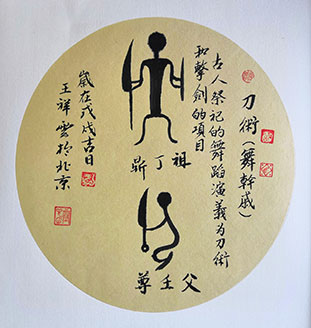 刀術(舞幹戚)
古人祭祀的舞蹈演義為刀術
和擊劍的項目
祖丁
父壬尊
歲在戊戌吉日
王祥雲於北京